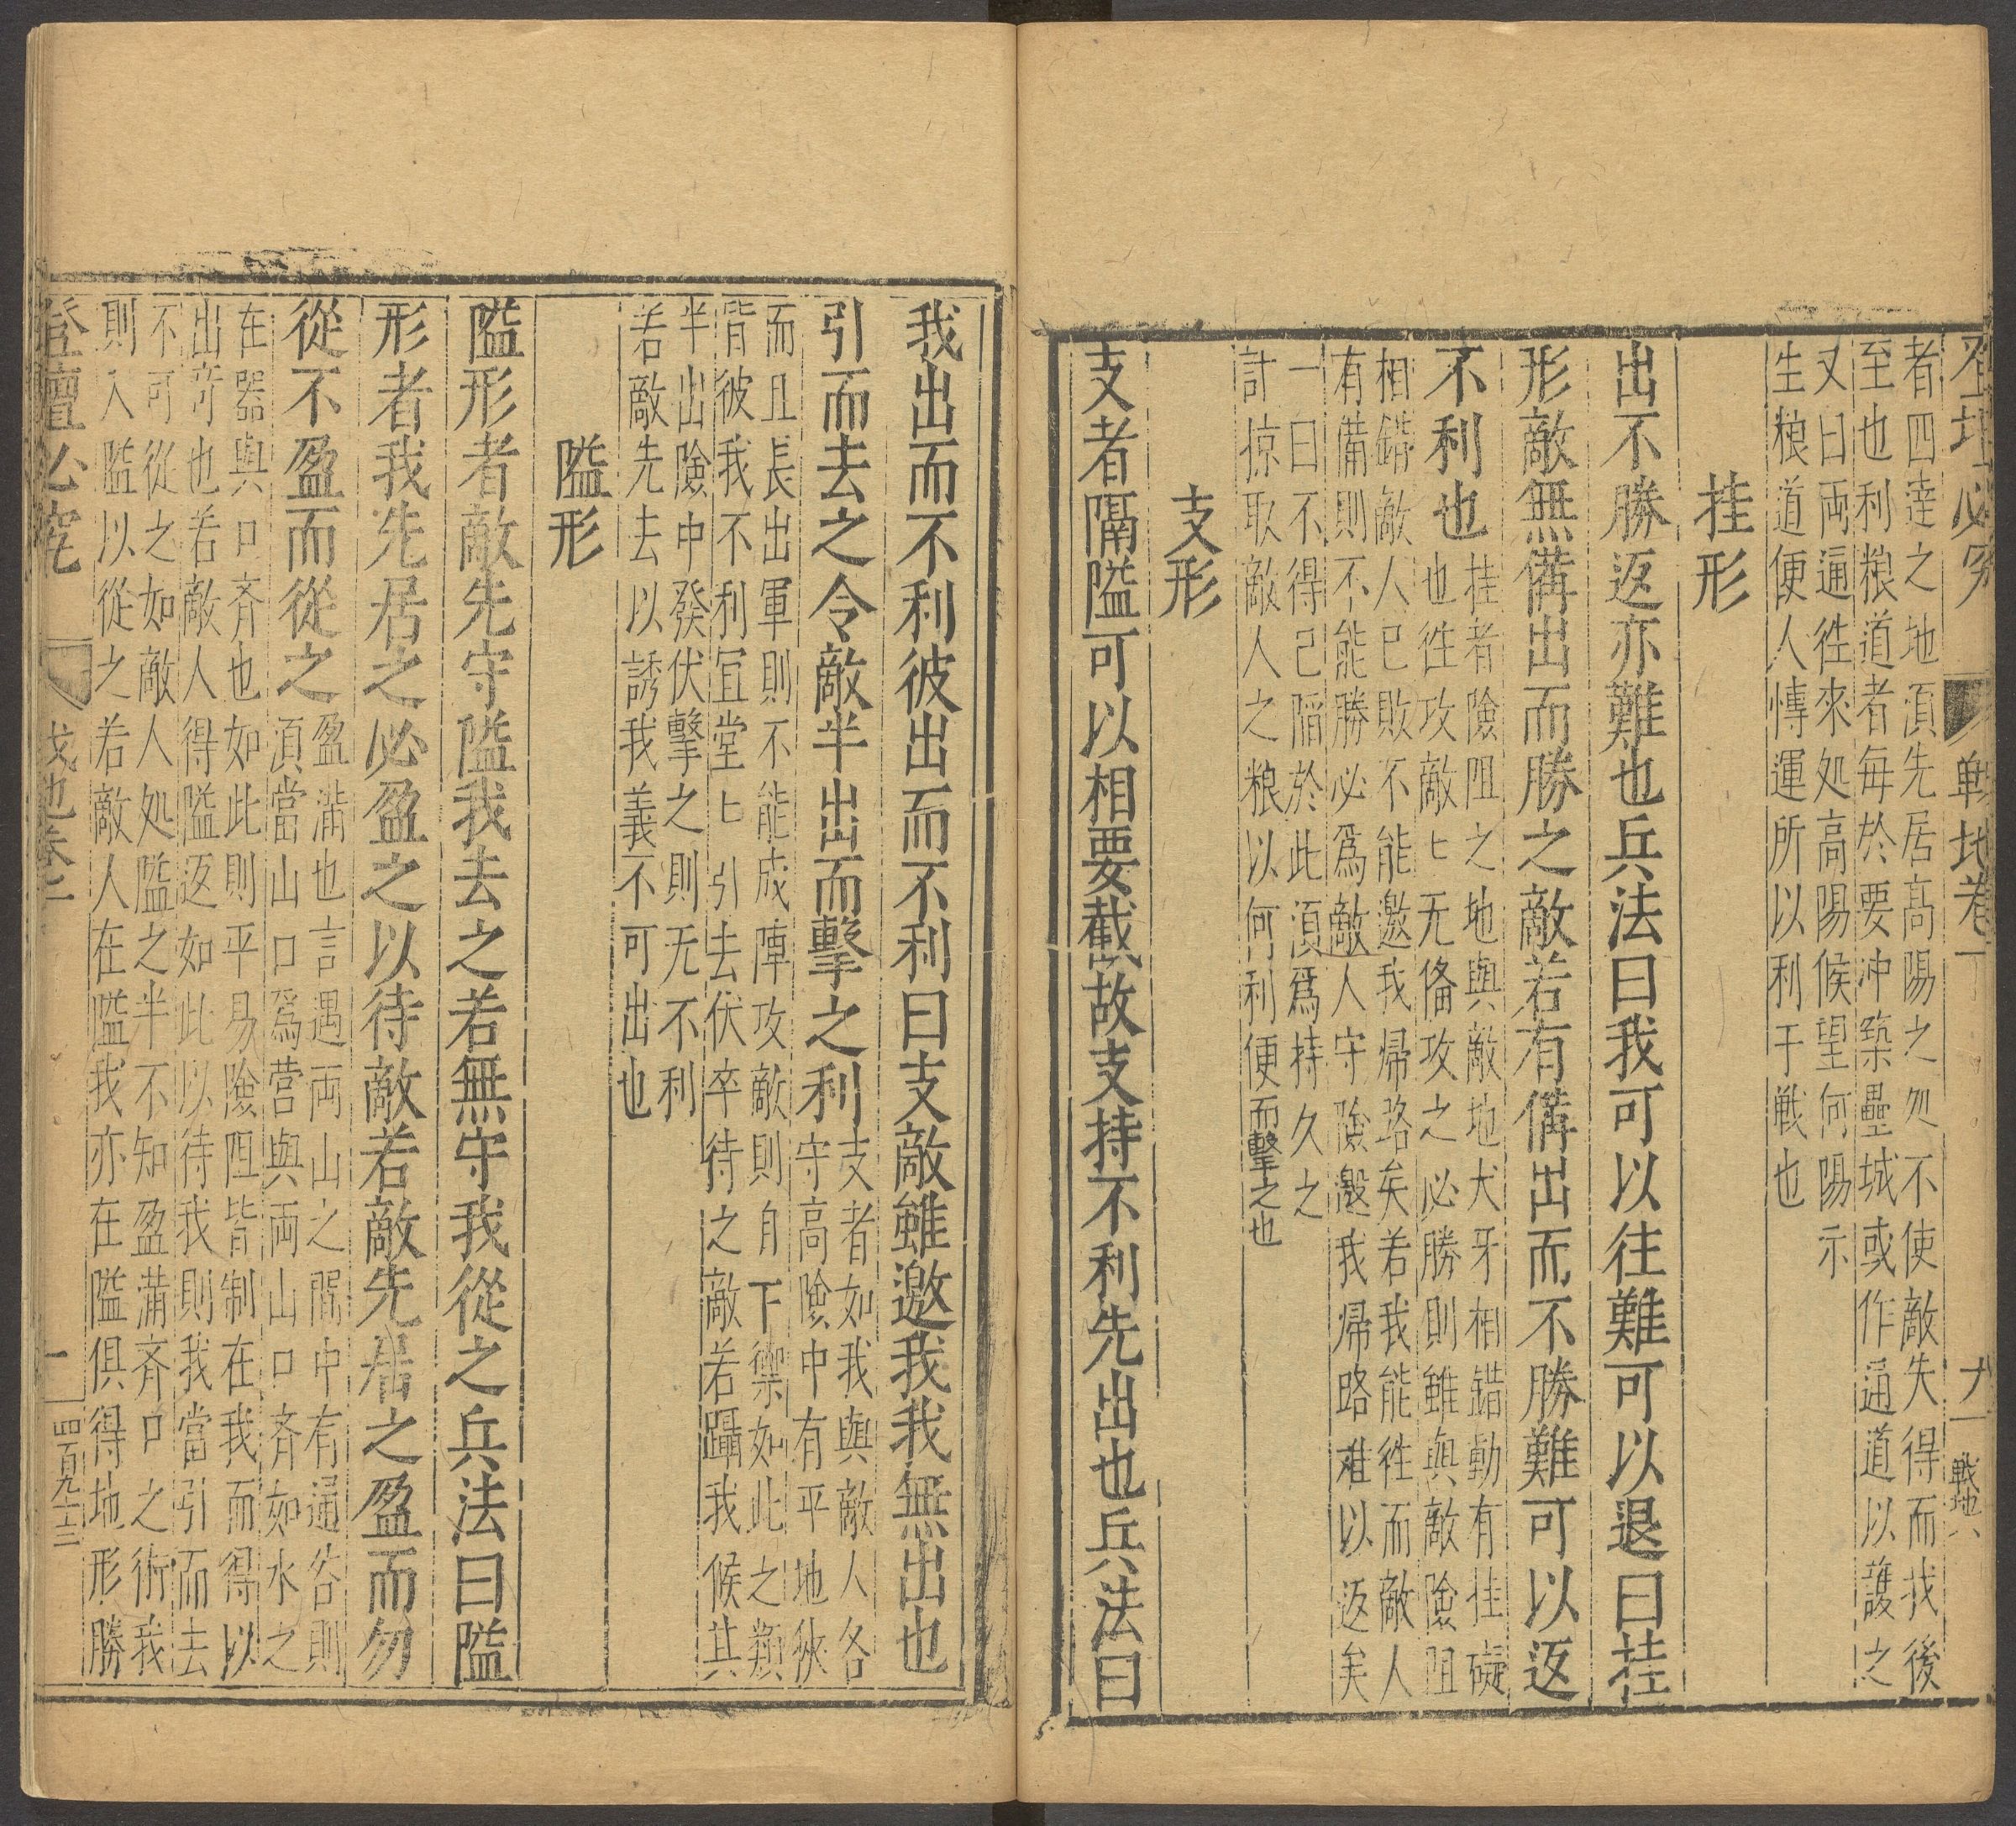 登壇必究
戰地卷一
戰地八
者四達之地湏先居高陽之処不使敵失得而我後
至也利粮道者每於要冲築壘城或作通道以護之
又曰両通徃來処高陽候望何陽示
生粮道便人慱運所以利于戦也
挂形
出不勝返亦難也兵法曰我可以往難可以退曰挂
形敵無備出而勝之敵若有備出而不勝難可以返
不利也
挂者險阻之地與敵地犬牙相錯動有挂礙
也徃攻敵〻无俻攻之必勝則雖與敵險阻
相錯敵人已敗不能邀我帰路矣若我能徃而敵人
有備則不能勝必爲敵人守險邀我帰路难以返矣
一曰不得已陷於此湏爲持久之
計掠取敵人之粮以何利便而擊之也
支形
支者隔隘可以相要截故支持不利先出也兵法曰
我出而不利彼出而不利曰支敵雖邀我我無出也
引而去之令敵半出而擊之利
支者如我與敵人各
守高險中有平地狹
而且長出軍則不能成陣攻敵則自下禦如此之類
皆彼我不利宜堂〻引去伏卒待之敵若躡我候其
半出險中發伏擊之則无不利
若敵先去以誘我義不可出也
隘形
隘形者敵先守隘我去之若無守我從之兵法曰隘
形者我先居之必盈之以待敵若敵先居之盈而勿
從不盈而從之
盈滿也言遇両山之間中有通谷則
湏當山口爲营與両山口齊如水之
在器與口齊也如此則平易險阻皆制在我而得以
出奇也若敵人得隘返如此以待我則我當引而去
不可從之如敵人処隘之半不知盈滿齊口之術我
則入隘以從之若敵人在隘我亦在隘俱得地形勝
登壇必究
戈地卷二
一
四百九十三